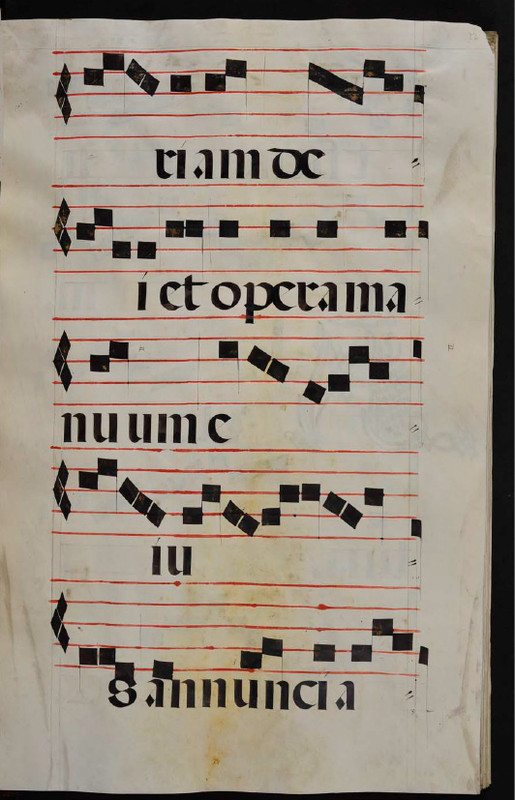 riam de
i et opera ma
nuum e
iu
s annuncia